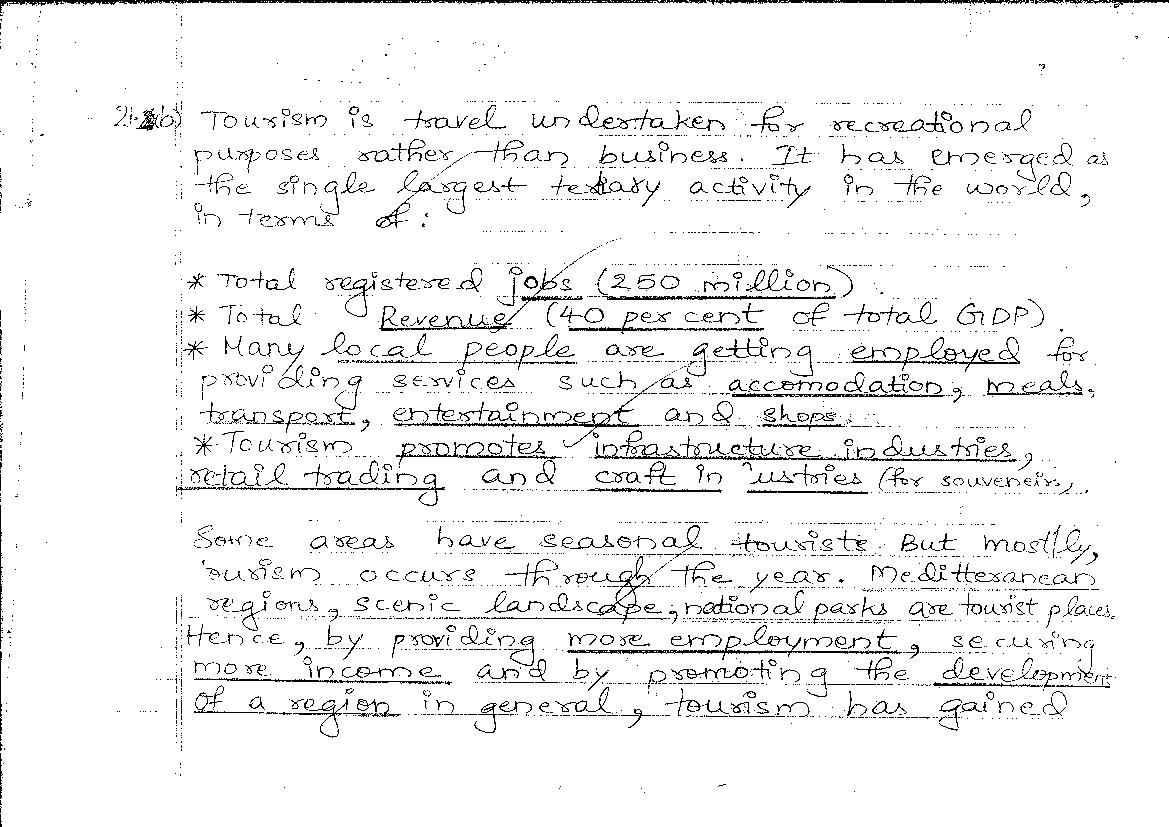 21. (b) Tourism is travel undertaken for recreational
purposes rather than business. It has emerged as
the single largest tertiary activity in the world,
in terms of :
* Total registered jobs (250 million).
* Total Revenue (40 per cent of total GDP).
* Many local people are getting employed for
providing services such as accomodation, meals,
transport, entertainment and shops.
* Tourism promotes infrastructure industries,
retail trading and craft in ustries (for souveneirs,
Some areas have seasonal tourists. But mostly,
ourism occurs through the year. Meditteranean
regions, scenic landscape, national parks are tourist places.
Hence, by providing more employment, securing
more income and by promoting the development
of a region in general, tourism has gained